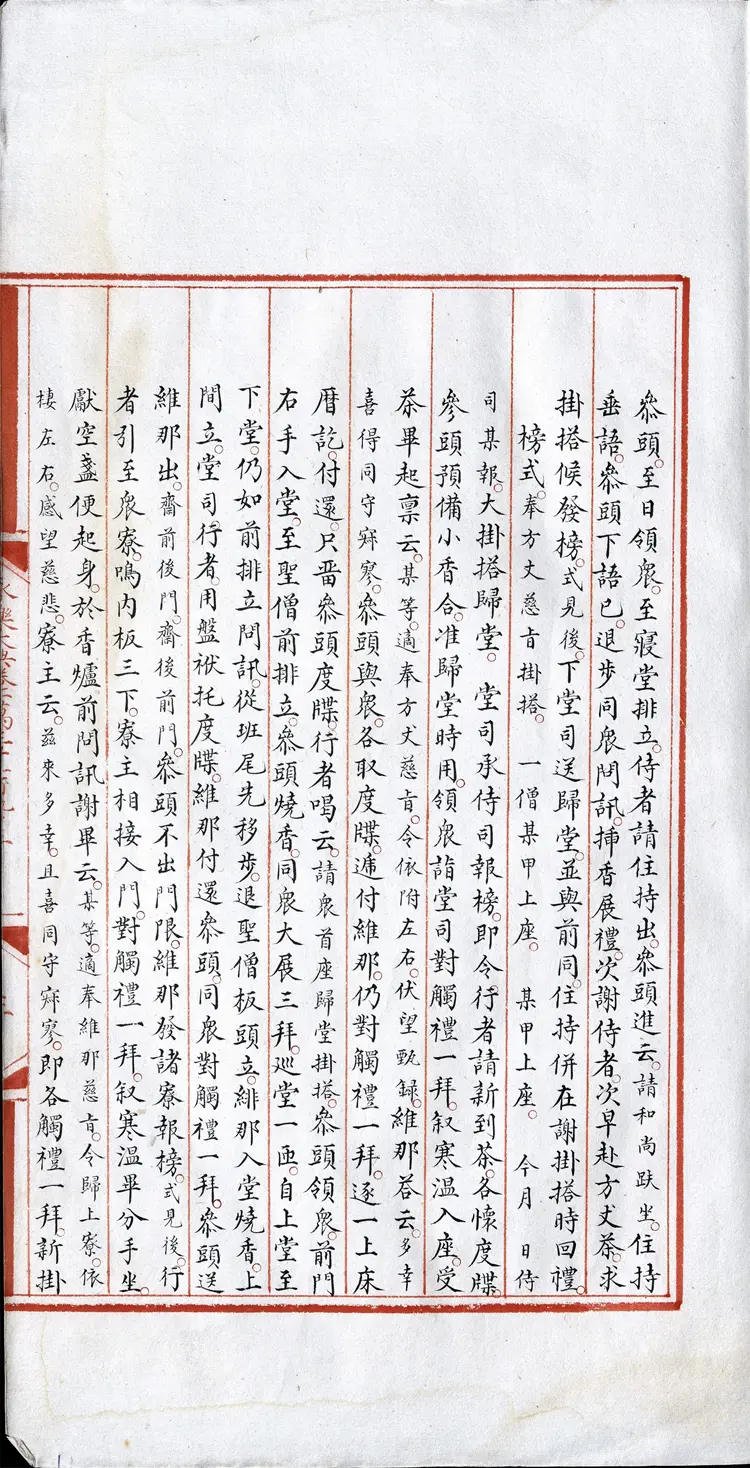 叅頭。至日領衆。至寢堂排立。侍者請住持出。叅頭進云。請和尚趺坐。住持
垂語。叅頭下語已。退步同衆問訊。揷香展禮。次謝侍者。次早赴方丈茶。求
掛搭候發榜。式見後。下堂司送歸堂。並與前同。住持併在謝掛搭時回禮。
榜式。奉方丈慈旨掛搭。一僧某甲上座。某甲上座。今月 日侍
司某報。大掛搭歸堂。堂司承侍司報榜。即令行者請新到茶。各懷度牒。
叅頭預備小香合。准歸堂時用。領衆詣堂司對觸禮一拜。叙寒温入座。受
茶畢起禀云。某等。適奉方丈慈旨。令依附左右。伏望甄録。維那答云。多幸
喜得同守寂寥。叅頭與衆。各取度牒。遞付維那。仍對觸禮一拜。逐一上床
暦訖。付還。只畱叅頭度牒。行者喝云。請衆首座歸堂掛搭。叅頭領衆。前門
右手入堂。至聖僧前排立。叅頭燒香。同衆大展三拜。巡堂一匝。自上堂至
下堂。仍如前排立問訊。從班尾先移步。退聖僧板頭立。緋那入堂燒香。上
間立。堂司行者。用盤袱托度牒。維那付還叅頭。同衆對觸禮一拜。叅頭送
維那出。齋前後門。齋後前門。叅頭不出門限。維那發諸寮報榜。式見後。行
者引至衆寮。鳴内板三下。寮主相接入門。對觸禮一拜。叙寒温畢分手坐。
獻空盞便起身。於香爐前問訊謝畢云。某等。適奉維那慈旨。令歸上寮。依
棲左右。感望慈悲。寮主云。兹來多幸。且喜同守寂寥。即各觸禮一拜。新掛